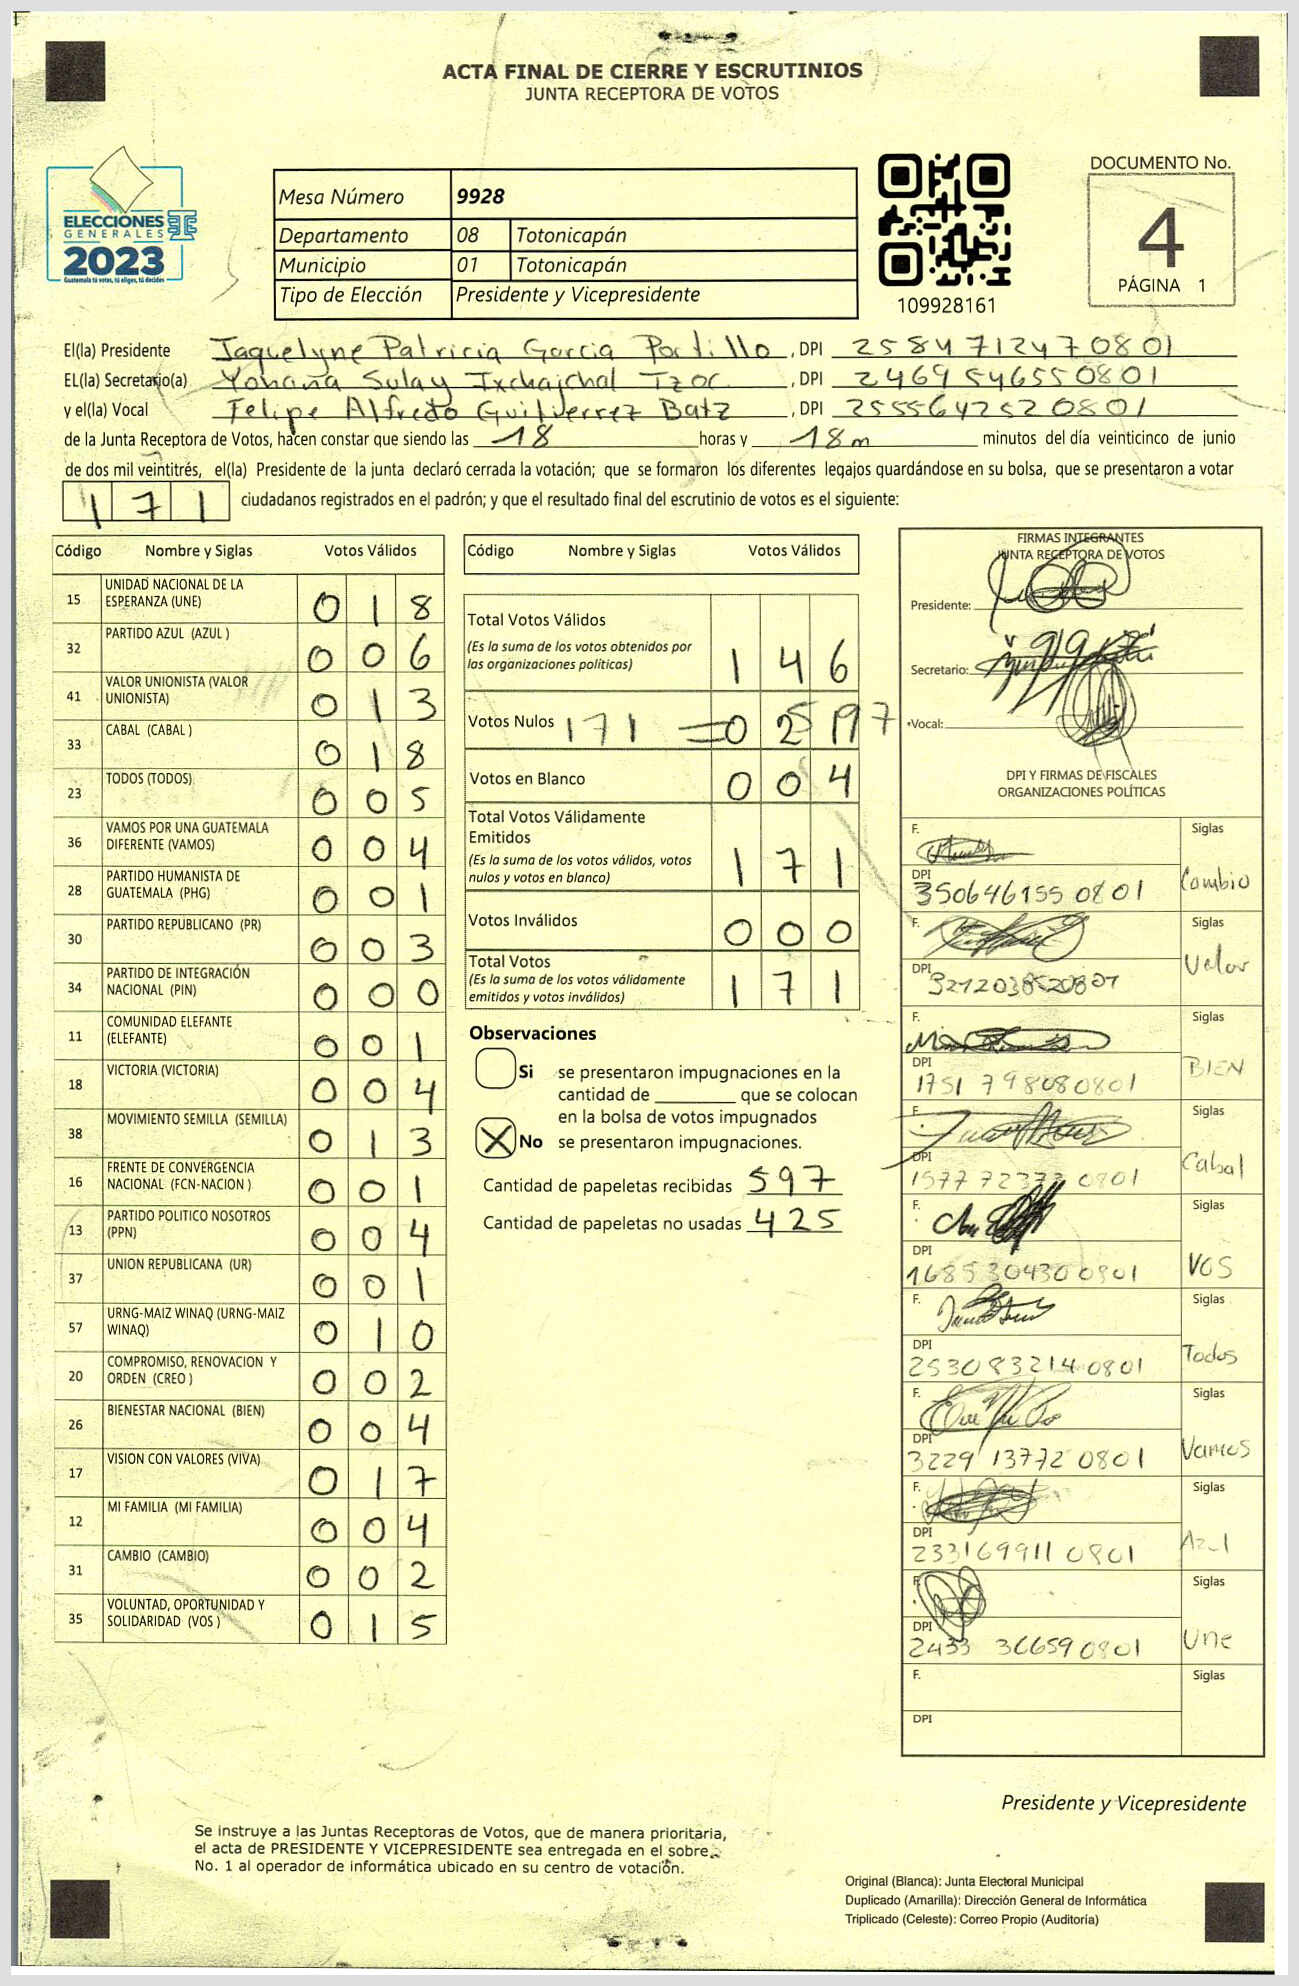 ACTA FINAL DE CIERRE Y ESCRUTINIOS
JUNTA RECEPTORA DE VOTOS
ELECCIONES
GENERALES
2023
Guatemala tú votas, tú eliges, tú decides
Mesa Número 9928
Departamento 08 Totonicapán
Municipio 01 Totonicapán
Tipo de Elección Presidente y Vicepresidente
109928161
DOCUMENTO No.
4
PÁGINA 1
El(la) Presidente Jaquelyne Patricia Garcia Portillo, DPI 2584712470801
EL(la) Secretario(a) Yohana Sulay Ixchajchal Tzoc, DPI 2469546550801
y el(la) Vocal Felipe Alfredo Guitierrez Batz, DPI 2555642520801
de la Junta Receptora de Votos, hacen constar que siendo las 18 horas y 18m minutos del día veinticinco de junio
de dos mil veintitrés, el(la) Presidente de la junta declaró cerrada la votación; que se formaron los diferentes legajos quardándose en su bolsa, que se presentaron a votar
171 ciudadanos registrados en el padrón; y que el resultado final del escrutinio de votos es el siguiente:
Código Nombre y Siglas Votos Válidos
15 UNIDAD NACIONAL DE LA ESPERANZA (UNE) 018
32 PARTIDO AZUL (AZUL ) 006
41 VALOR UNIONISTA (VALOR UNIONISTA) 013
33 CABAL (CABAL ) 018
23 TODOS (TODOS) 005
36 VAMOS POR UNA GUATEMALA DIFERENTE (VAMOS) 004
28 PARTIDO HUMANISTA DE GUATEMALA (PHG) 001
30 PARTIDO REPUBLICANO (PR) 003
34 PARTIDO DE INTEGRACIÓN NACIONAL (PIN) 000
11 COMUNIDAD ELEFANTE (ELEFANTE) 001
18 VICTORIA (VICTORIA) 004
38 MOVIMIENTO SEMILLA (SEMILLA) 013
16 FRENTE DE CONVERGENCIA NACIONAL (FCN-NACION ) 001
13 PARTIDO POLITICO NOSOTROS (PPN) 004
37 UNION REPUBLICANA (UR) 001
57 URNG-MAIZ WINAQ (URNG-MAIZ WINAQ) 010
20 COMPROMISO, RENOVACION Y ORDEN (CREO ) 002
26 BIENESTAR NACIONAL (BIEN) 004
17 VISION CON VALORES (VIVA) 017
12 MI FAMILIA (MI FAMILIA) 004
31 CAMBIO (CAMBIO) 002
35 VOLUNTAD, OPORTUNIDAD Y SOLIDARIDAD (VOS ) 015
Código Nombre y Siglas Votos Válidos
Total Votos Válidos
(Es la suma de los votos obtenidos por
las organizaciones políticas) 146
Votos Nulos 171 = 02
Votos en Blanco 004
Total Votos Válidamente
Emitidos
(Es la suma de los votos válidos, votos
nulos y votos en blanco) 171
Votos Inválidos 000
Total Votos
(Es la suma de los votos válidamente
emitidos y votos inválidos) 171
Observaciones
Si se presentaron impugnaciones en la
cantidad de ________ que se colocan
en la bolsa de votos impugnados
X No se presentaron impugnaciones.
Cantidad de papeletas recibidas 597
Cantidad de papeletas no usadas 425
FIRMAS INTEGRANTES
JUNTA RECEPTORA DE VOTOS
Presidente:
Secretario:
Vocal:
DPI Y FIRMAS DE FISCALES
ORGANIZACIONES POLÍTICAS
F. Siglas
DPI 350646155 0801 Cambio
F. Siglas
DPI Valor
F. Siglas
DPI 1751 798080801 BIEN
F. Siglas
DPI 0801 Cabal
F. Siglas
DPI 1685304300801 VOS
F. Siglas
DPI 2530832140801 Todos
F. Siglas
DPI 3229 13772 0801 Vamos
F. Siglas
DPI 233169911 0801 Azul
F. Siglas
DPI 2433 366590801 Une
F. Siglas
DPI
Presidente y Vicepresidente
Se instruye a las Juntas Receptoras de Votos, que de manera prioritaria,
el acta de PRESIDENTE Y VICEPRESIDENTE sea entregada en el sobre
No. 1 al operador de informática ubicado en su centro de votación.
Original (Blanca): Junta Electoral Municipal
Duplicado (Amarilla): Dirección General de Informática
Triplicado (Celeste): Correo Propio (Auditoría)